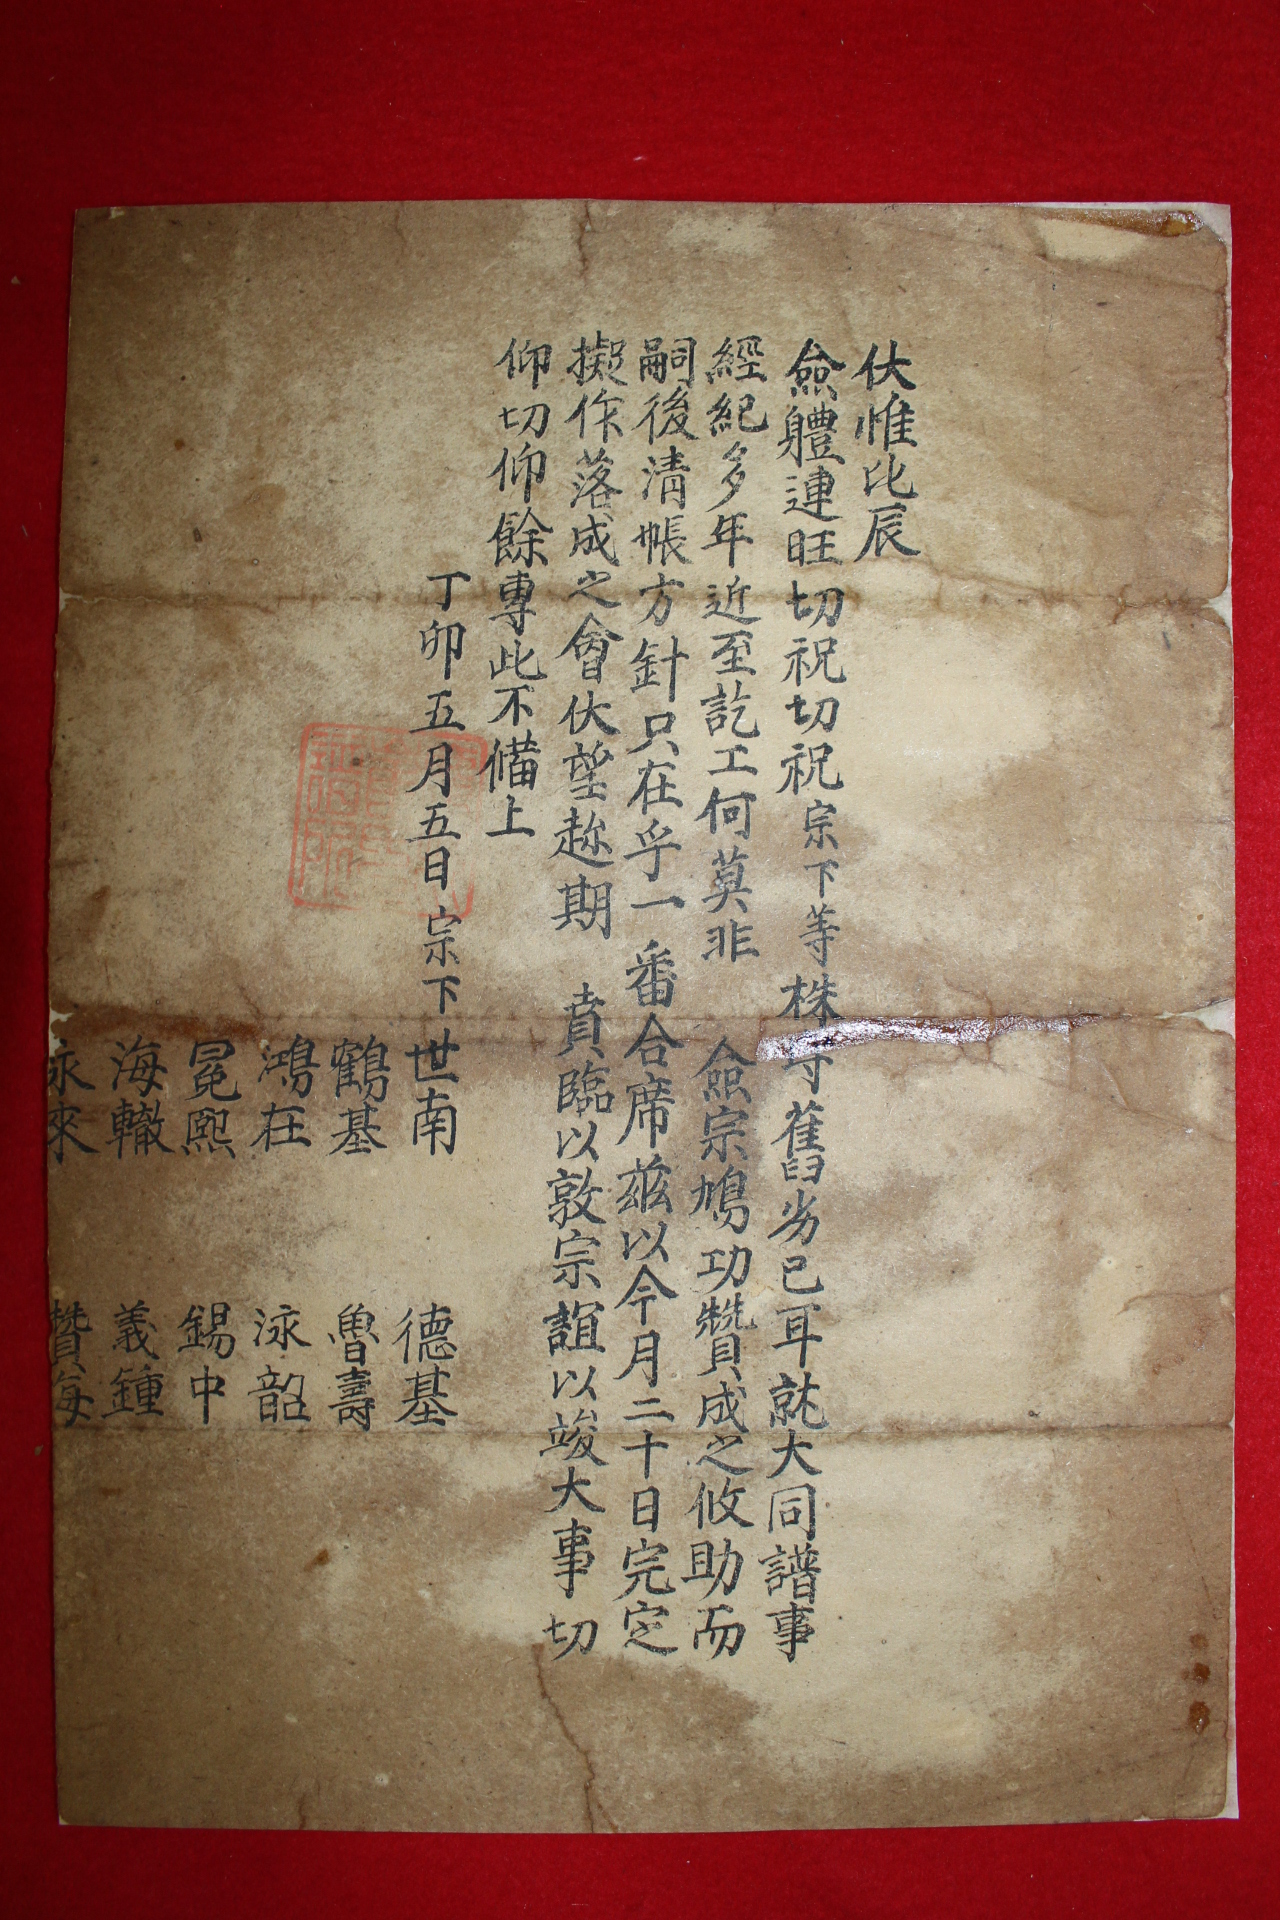 伏惟比辰
僉體連旺切祝切祝宗下等株守舊劣已耳就大同譜事
經紀多年近至訖工何莫非 僉宗鳩功贊成之攸助而
嗣後淸帳方針只在乎一番合席玆以今月二十日完定
擬作落成之會伏望趂期 賁臨以敦宗誼以竣大事切
仰切仰餘專此不備上
丁卯五月五日宗下世南 德基
鶴基 魯壽
鴻在 泳韶
冕熙 錫中
海轍 義鍾
永來 贊海